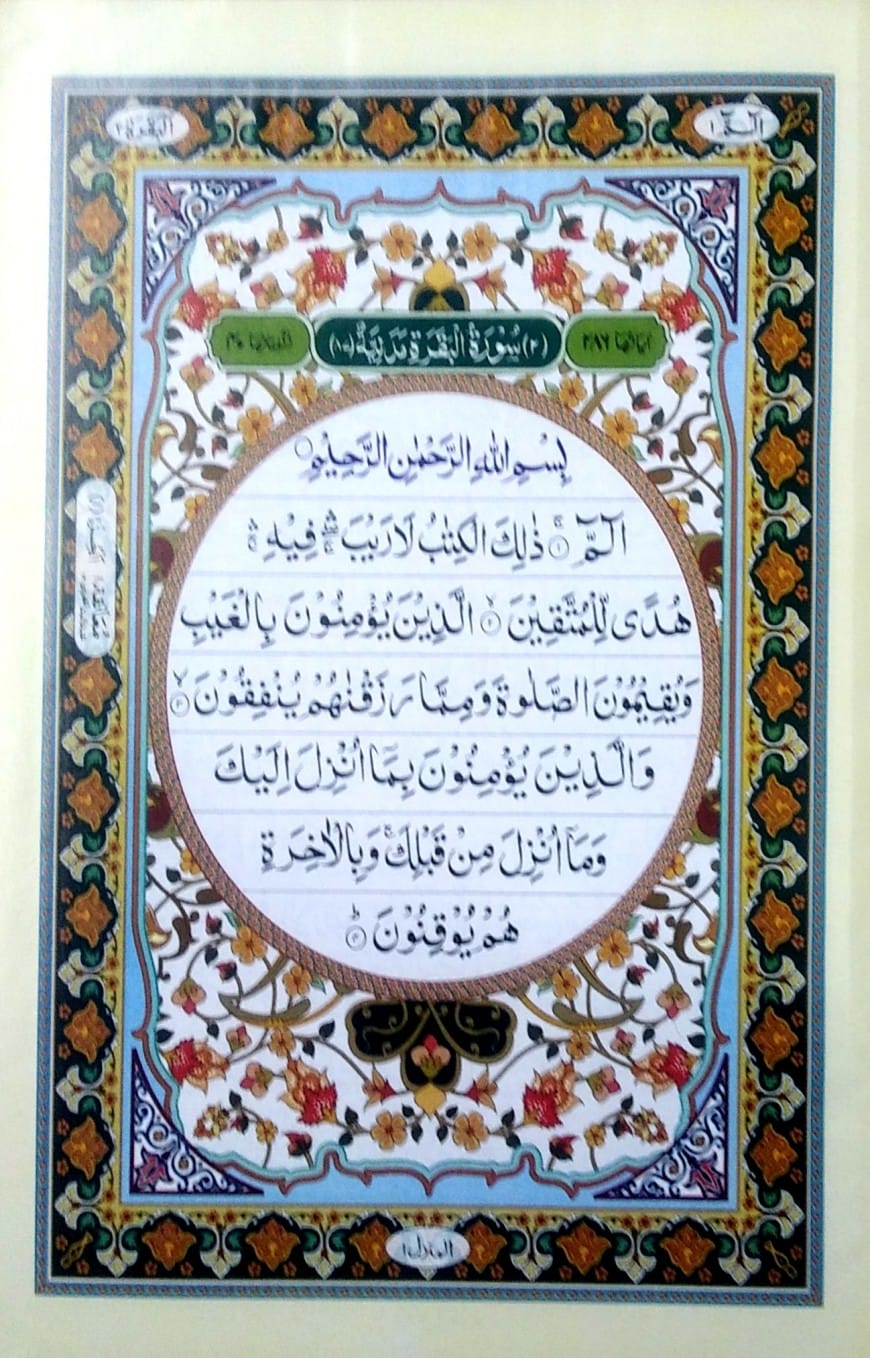 الٓمّٓ ١
البقرة ٢
اٰیاتها ٢٨٦
(٢) سُوْرَةُ الْبَقَرَةِ مَدَنِیَّةٌ (٨٧)
رکوعاتها ٤٠
بِسْمِ اللّٰهِ الرَّحْمٰنِ الرَّحِیْمِ
الٓمّٓ ۚ﴿١﴾ ذٰلِكَ الْكِتٰبُ لَا رَیْبَ ۛۖۚ فِیْهِ ۛۚ
هُدًی لِّلْمُتَّقِیْنَ ۙ﴿٢﴾ الَّذِیْنَ یُؤْمِنُوْنَ بِالْغَیْبِ
وَیُقِیْمُوْنَ الصَّلٰوةَ وَمِمَّا رَزَقْنٰهُمْ یُنْفِقُوْنَ ۙ﴿٣﴾
وَالَّذِیْنَ یُؤْمِنُوْنَ بِمَاۤ اُنْزِلَ اِلَیْكَ
وَمَاۤ اُنْزِلَ مِنْ قَبْلِكَ ۚ وَبِالْاٰخِرَةِ
هُمْ یُوْقِنُوْنَ ؕ﴿٤﴾
المنزل ١